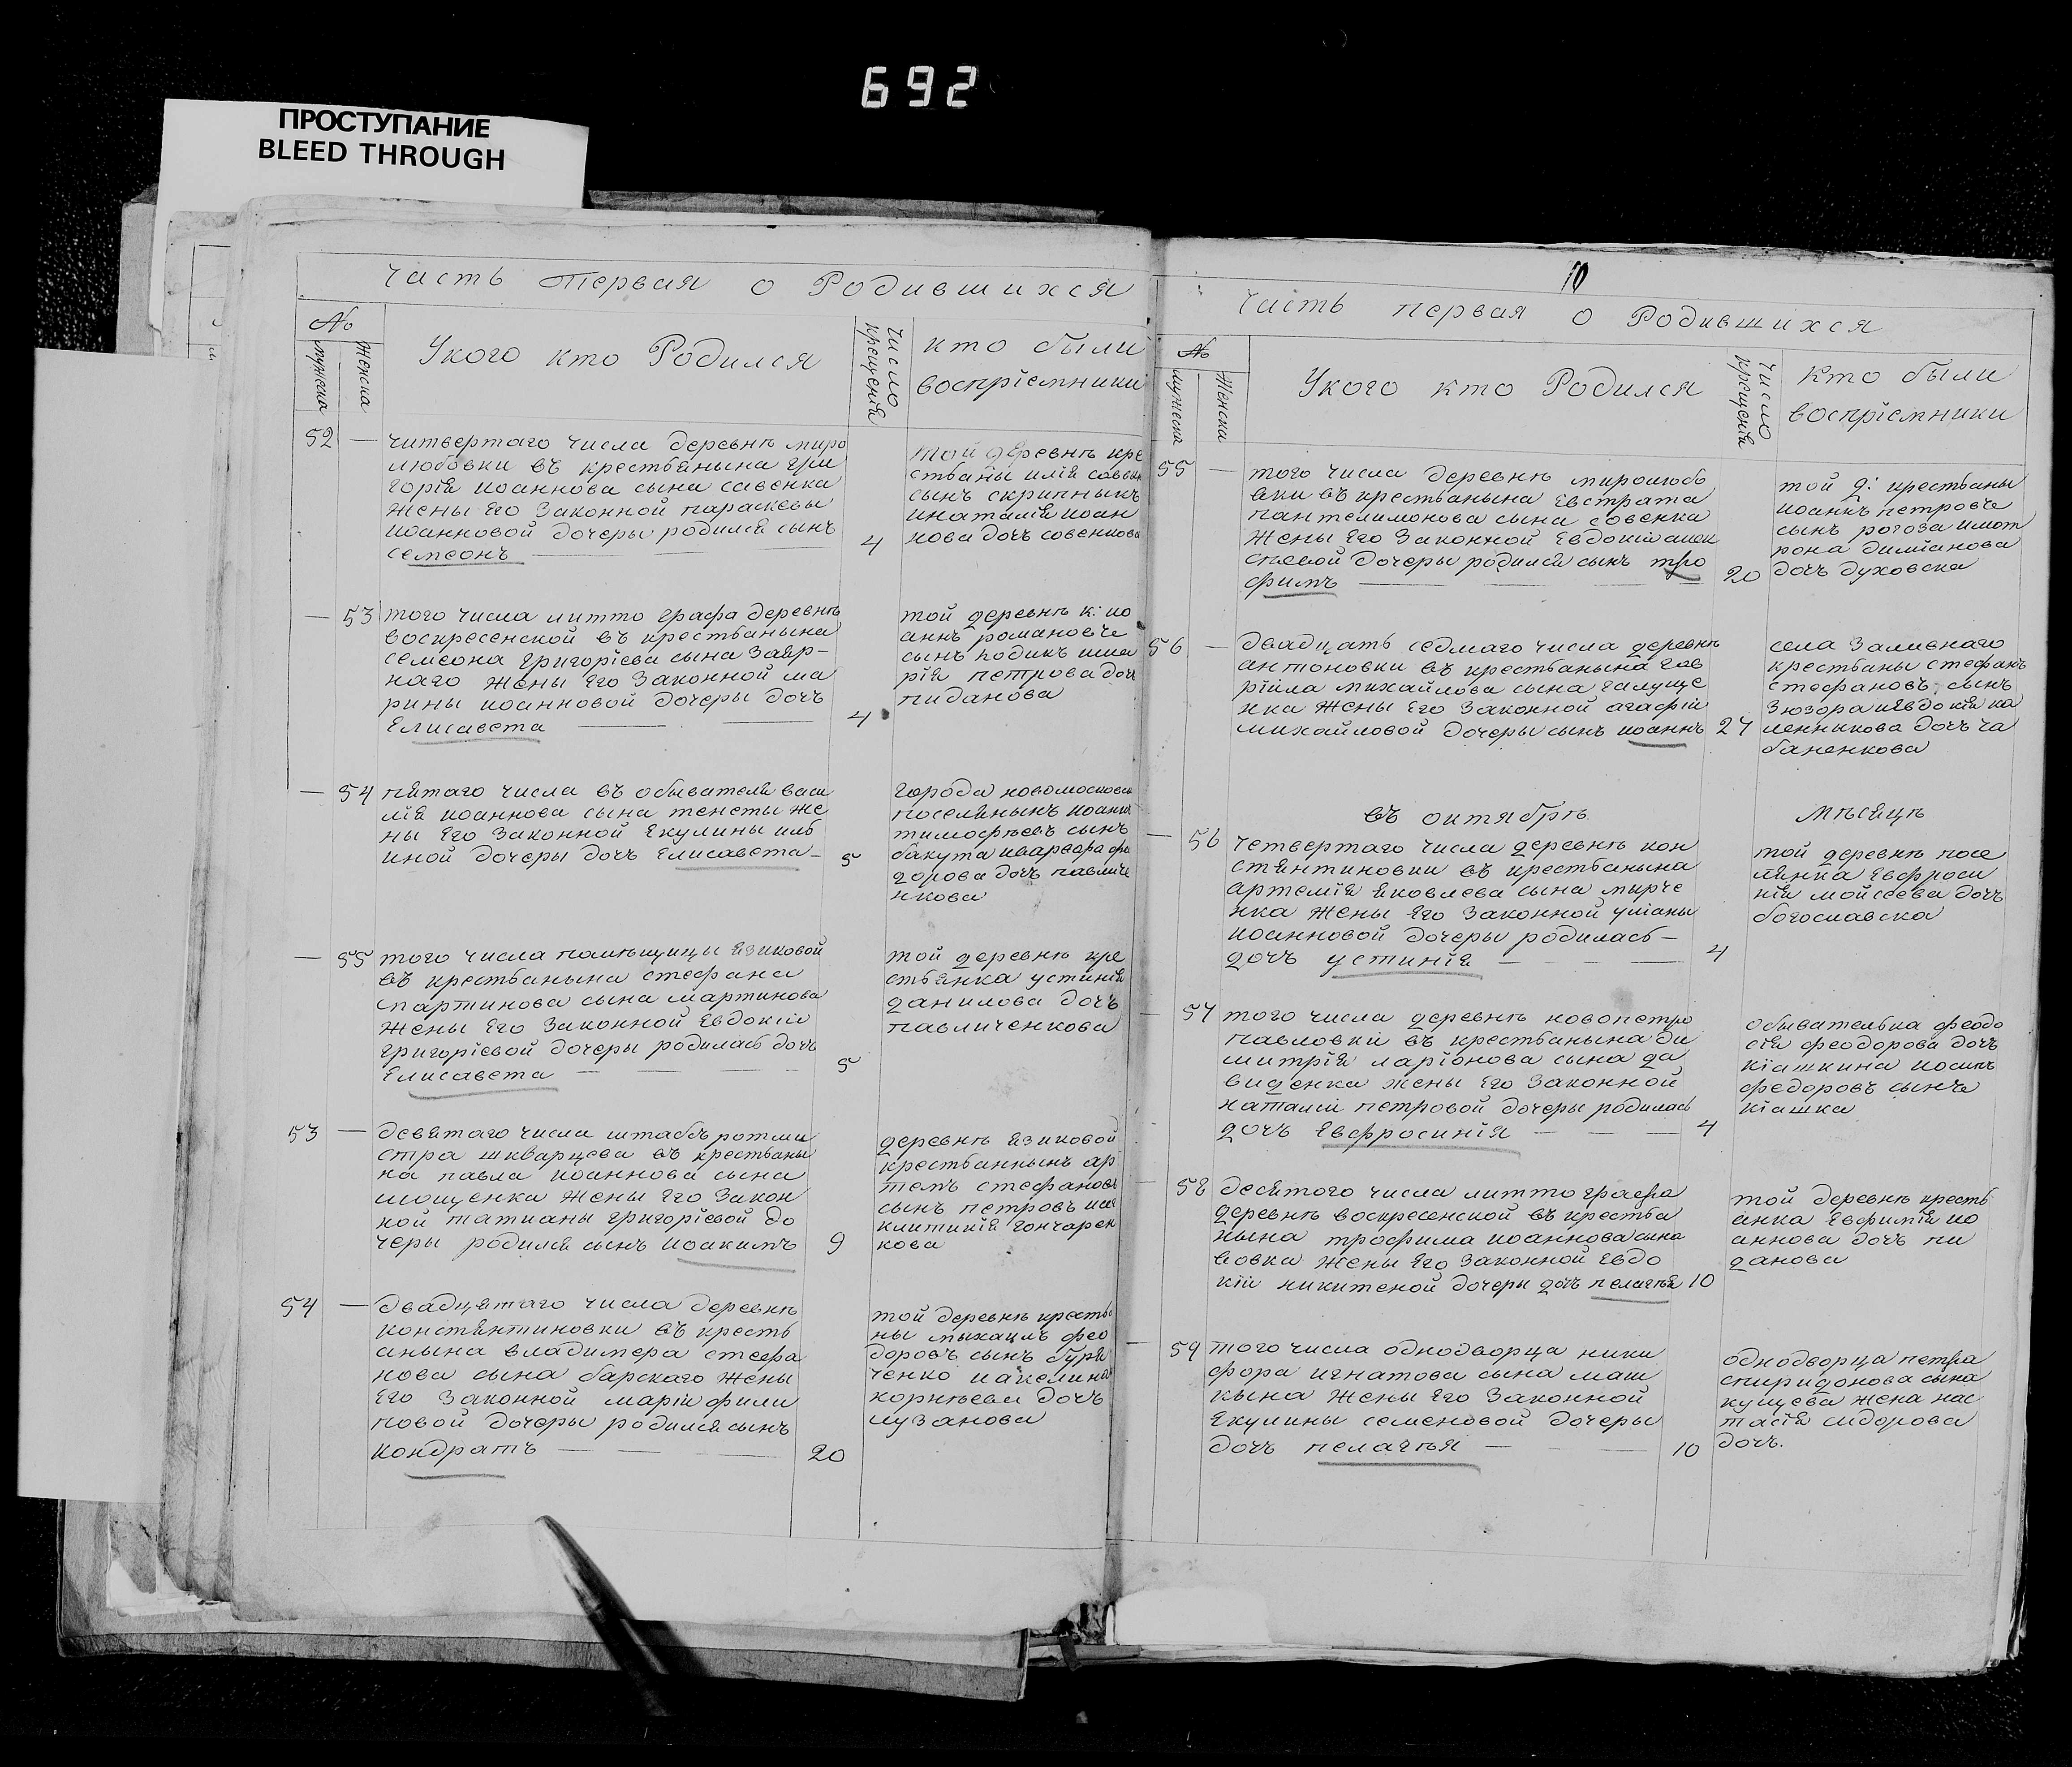 692
ПРОСТУПАНИЕ
BLEED THROUGH
Часть первая о Родившихся
№
мужеска
женска
Укого кто Родился
число
крещенія
кто были
воспріемники
52 —
читвертаго числа деревнѣ миро
любовки въ крестьянына гри
горія иоаннова сына савенка
жены его законной параскевы
иоанновой дочеры родился сынъ
семеонъ
4
той деревнѣ кре
стьаны илія
сынъ скрипныкъ
инаталія иоан
нова дочъ совенкова
— 53
того числа литто графа деревнѣ
воскресенской въ крестьанына
семеона григоріева сына
наго жены его законной ма
рины иоанновой дочеры дочъ
Елисавета
4
той деревнѣ к: ио
аннъ романовъ
сынъ подикъ има
рія петрова доч
пиданова
— 54
пятаго числа въ обывателя васи
лія иоаннова сына тенеты же
ны его законной Екулины иль
иной дочеры дочъ Елисавета
5
города новомосковска
поселянынъ иоаннъ
тимофѣевъ сынъ
бакута иварвара фе
дорова дочъ павличе
нкова
— 55
того числа памѣщицы Язиковой
въ крестьанына стефана
мартинова сына мартинова
жены его законной Евдокіи
григоріевой дочеры родилась дочъ
Елисавета
5
той деревнѣ кре
стьянка устинія
данилова дочъ
павличенкова
53 —
девятаго числа штабъ ротми
стра шкварцева въ крестьаны
на павла иоаннова сына
мощенка жены его закон
ной татианы григоріевой до
черы родился сынъ иоакимъ
9
деревнѣ Язиковой
крестьаннынъ ар
темъ стефановъ
сынъ петровъ
гончарен
кова
54 —
двадцятаго числа деревнѣ
констянтиновки въ кресть
анына владимера стефа
нова сына барскаго жены
его законной маріи фили
повой дочеры родился сынъ
кондратъ
20
той деревнѣ крестьа
ны мыхаилъ фео
доровъ сынъ буря
ченко иакелина
корнѣева дочъ
лузанова
10
Часть первая о Родившихся
№
мужеска
женска
Укого кто Родился
число
крещенія
кто были
воспріемники
55 —
того числа деревнѣ миролюбо
вки въ крестьанына Евстрата
пантелимонова сына совенка
жены его законной Евдокіи алек
сѣевой дочеры родился сынъ тро
фимъ
20
той д: крестьаны
иоаннъ петровъ
сынъ рогоза имот
рона диміанова
дочъ духовска
56 —
двадцать седмаго числа деревнѣ
антоновки въ крестьанына гав
ріила михайлова сына галуще
нка жены его законной агафіи
михайловой дочеры сынъ иоаннъ
27
села заливнаго
крестьаны стефанъ
стефановъ сынъ
зюзора иевдокія ка
ленникова дочъ ча
баненкова
въ октябрѣ мѣсяцѣ
— 56
четвертаго числа деревнѣ кон
стянтиновки въ крестьанына
артемія яковлева сына мырче
нка жены его законной уліаны
иоанновой дочеры родилась
дочъ устинія
4
той деревнѣ посе
лянка Евфроси
нія мойсеева дочъ
богославска
— 57
того числа деревнѣ новопетро
павловки въ крестьанына ди
митрія ларіонова сына да
виденка жены его законной
наталіи петровой дочеры родилась
дочъ Евфросинія
4
обывателька феодо
сія феодорова дочъ
кіашкина иосипъ
федоровъ сынъ
кіашка
— 58
десятого числа литто графа
деревнѣ воскресенской въ крестьа
нына трофима иоаннова сына
вовка жены его законной Евдо
кіи никитеной дочеры дочъ пелагѣя
10
той деревнѣ кресть
анка Евфимія ио
аннова дочъ пи
данова
— 59
того числа однодворца ники
фора игнатова сына маш
кына жены его законной
Екулины семеновой дочеры
дочъ пелагѣя
10
однодворца петра
спиридонова сына
кущева жена нас
тасія сидорова
дочъ.